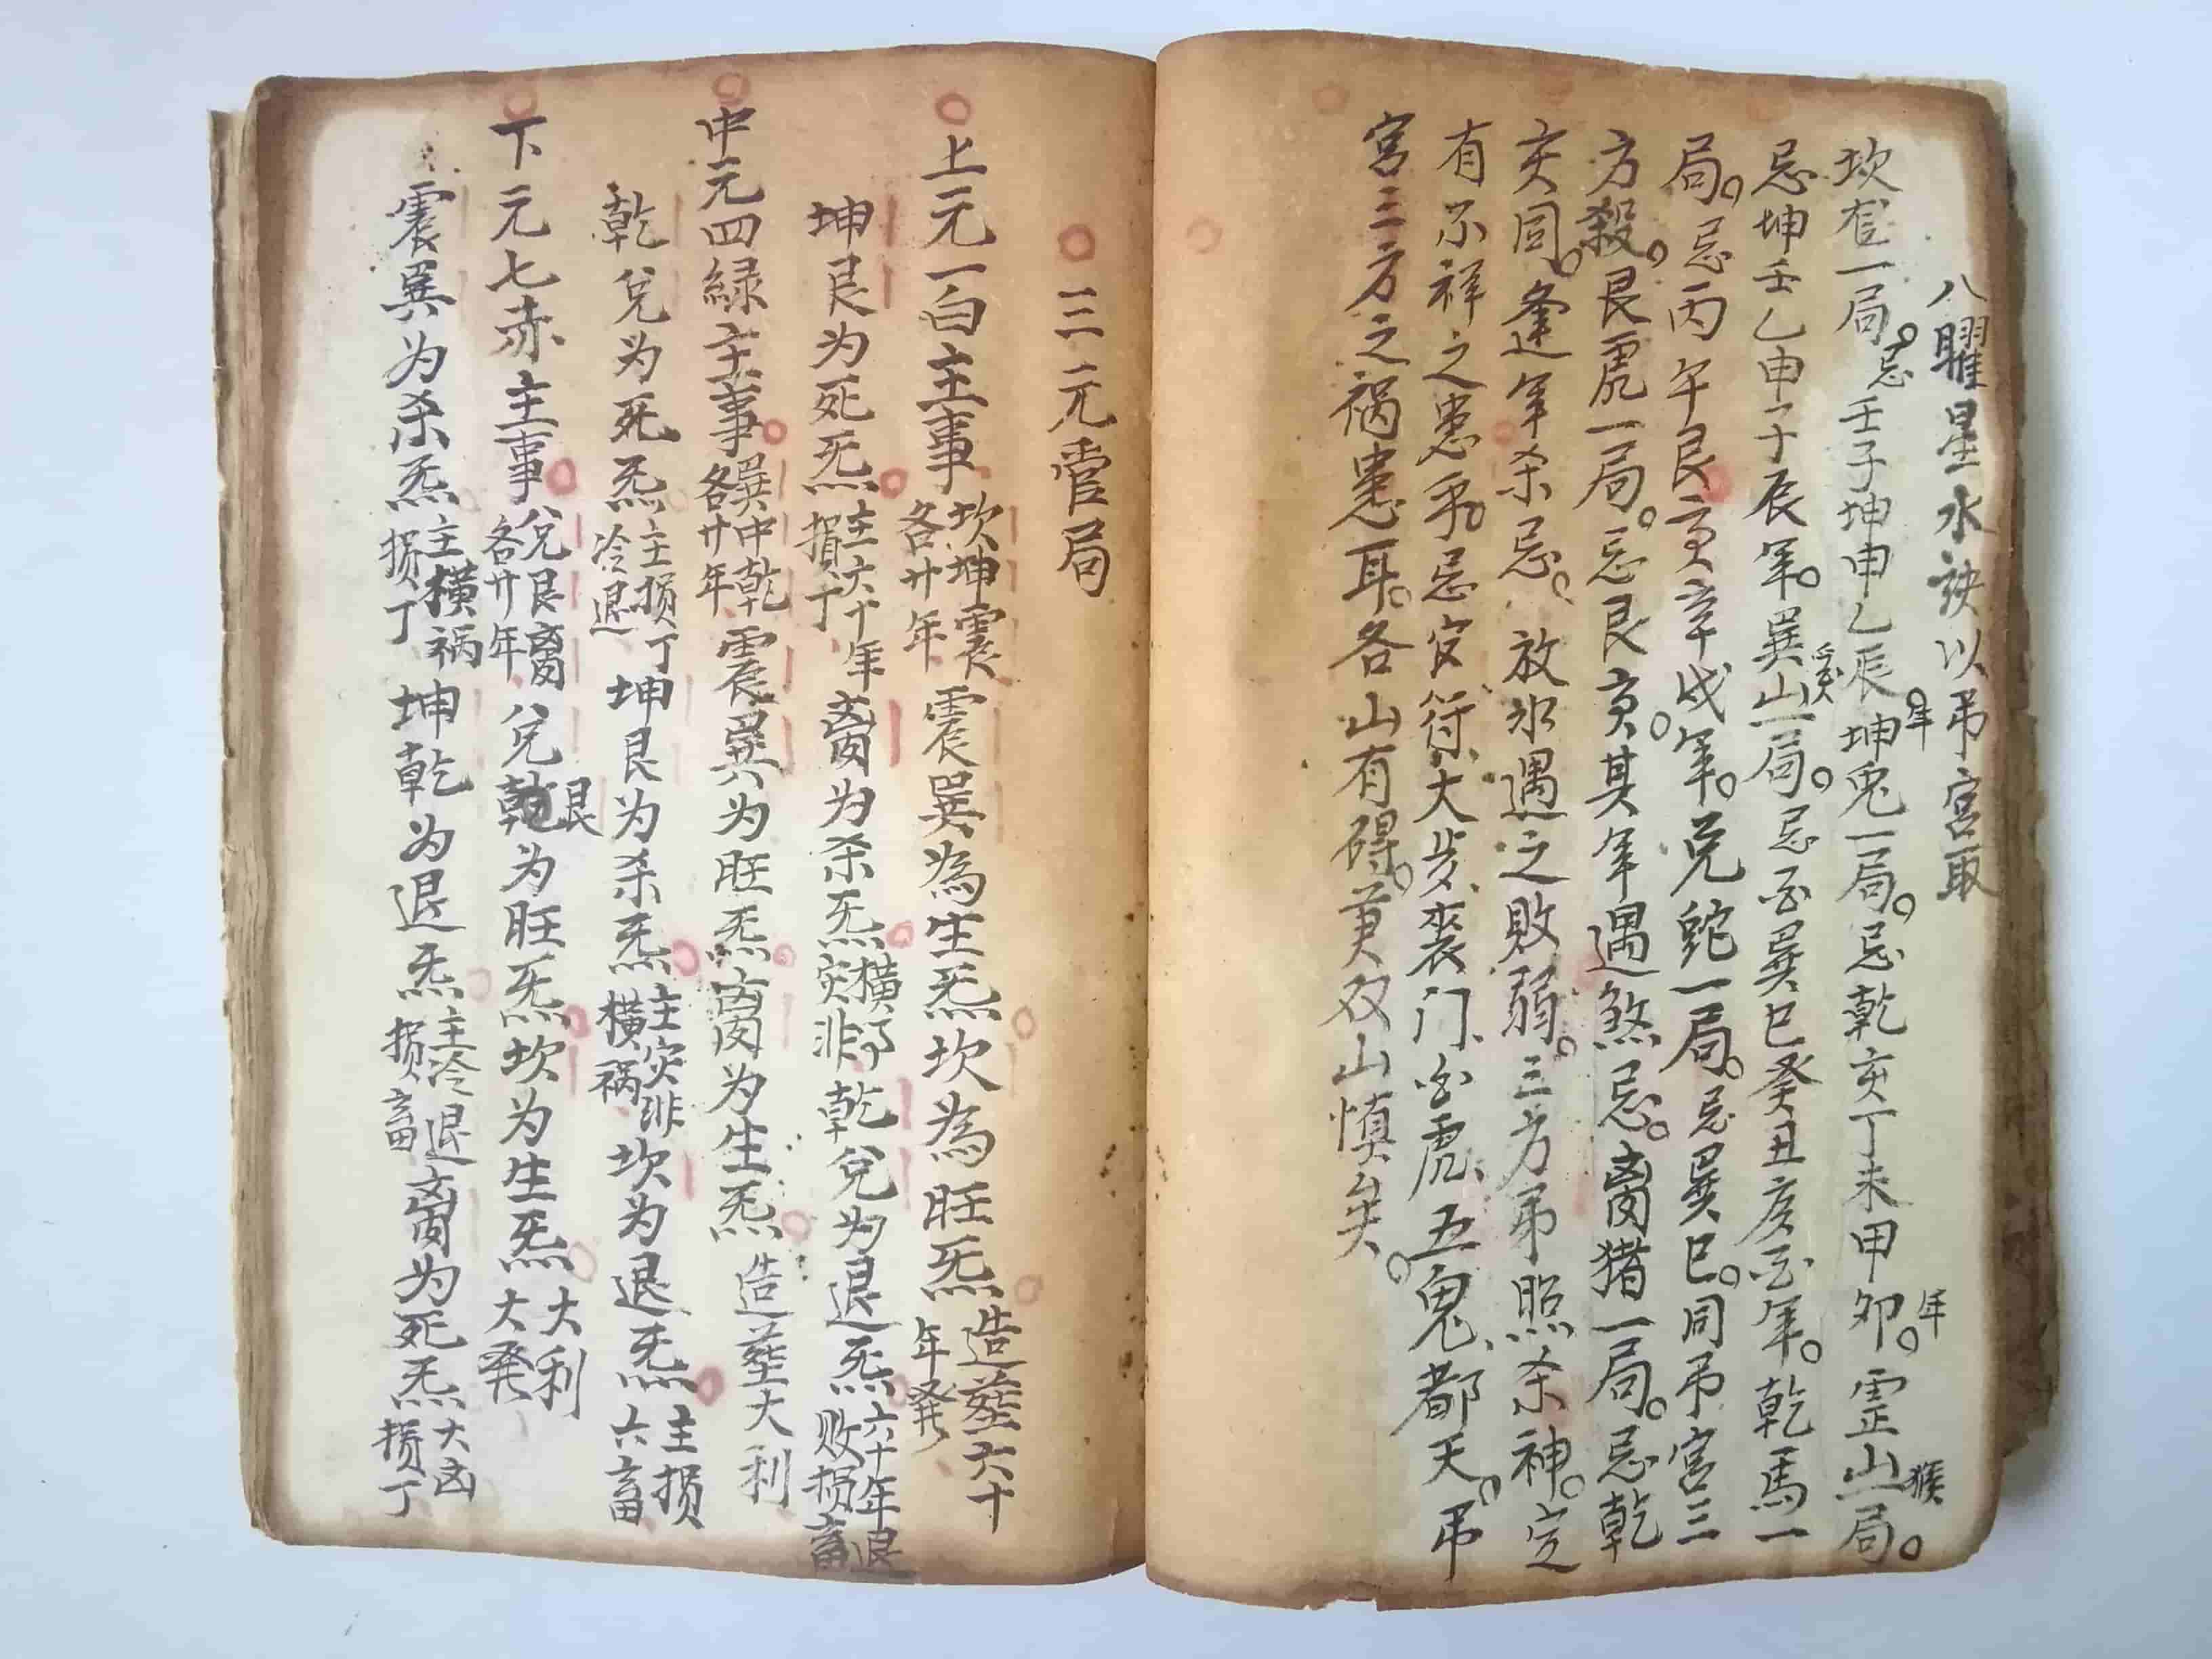 八曜星水訣以吊宮取
坎宅一局。忌壬子坤申乙辰年。坤兔一局。忌乾亥丁未甲卯年。震山猴一局。
忌坤壬乙申子辰年。巽山雞一局。忌酉巽巳癸丑亥酉年。乾馬一
局。忌丙午艮寅辛戌年。兌蛇一局。忌巽巳。同吊宮三
方殺。艮虎一局。忌艮寅。其年遇煞忌。离猪一局。忌乾
亥同。逢年杀忌。放水遇之敗弱。三方吊照杀神。定
有不祥之患乎。忌官符、大步、丧门、白虎、五鬼、都天。吊
宮三方之祸患耳。各山有碍。兼双山慎矣。
三元管局
上元一白主事 坎坤震各廿年 震巽為生炁坎為旺炁 造塟六十年発
坤艮为死炁 主六十年損丁 离为杀炁 横了灾非 乾兌为退炁 六十年退败损畜
中元四緑主事 巽中乾各廿年 震巽为旺炁离为生炁 造塟大利
乾兌为死炁 主损丁冷退 坤艮为杀炁 主灾非横祸 坎为退炁 主损六畜
下元七赤主事 兌艮离各廿年 兌艮为旺炁坎为生炁 大利大発
震巽为杀炁 主横祸损丁 坤乾为退炁 主冷退损畜 离为死炁 大凶损丁